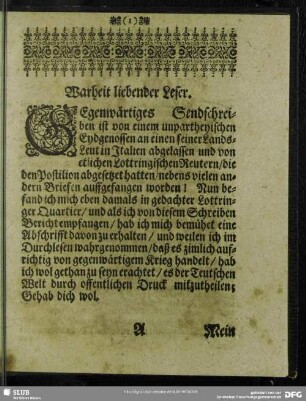 (1)
Warheit liebender Leser.
GEgenwärtiges Sendschrei-
ben ist von einem unpartheyischen
Eydgenossen an einen seiner Lands-
Leut in Italien abgelassen und von
etlichen Lottringischen Reutern/die
den Postilion abgesetzet hatten/nebens vielen an-
dern Briefen auffgefangen worden! Nun be-
fand ich mich eben damals in gedachter Lottrin-
ger Quartier/und als ich von diesem Schreiben
Bericht empfangen/hab ich mich bemühet eine
Abschrifft davon zu erhalten/und weilen ich im
Durchlesen wahrgenommen/daß es zimlich auf-
richtig von gegenwärtigem Krieg handelt/hab
ich wol gethan zu seyn erachtet/es der Teutschen
Welt durch offentlichen Druck mitzutheilen;
Gehab dich wol.
A Mein
SLUB
DFG